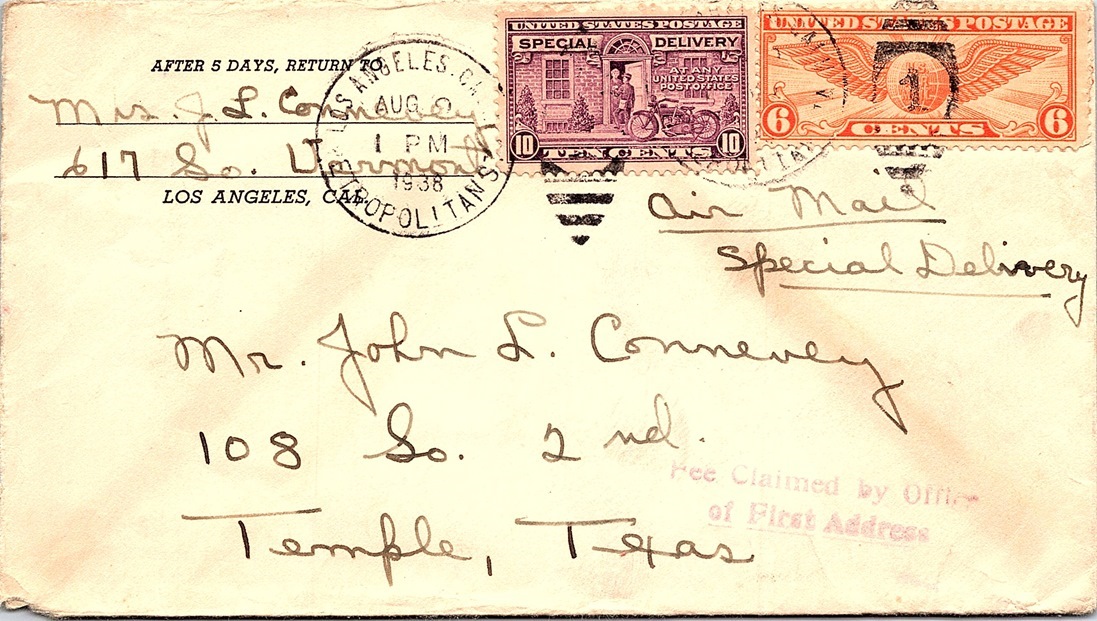 AFTER 5 DAYS, RETURN TO
Mrs. J. L. Connevey
617 So. Vermont
LOS ANGELES, CAL.
LOS ANGELES, CA
AUG
1 PM
1938
METROPOLITAN STA
UNITED STATES POSTAGE
SPECIAL DELIVERY
AT ANY
UNITED STATES
POST OFFICE
10 TEN CENTS 10
UNITED STATES POSTAGE
6 CENTS 6
1
Air Mail
Special Delivery
Mr. John L. Connevey
108 So. 2nd.
Temple, Texas
Fee Claimed by Office
of First Address